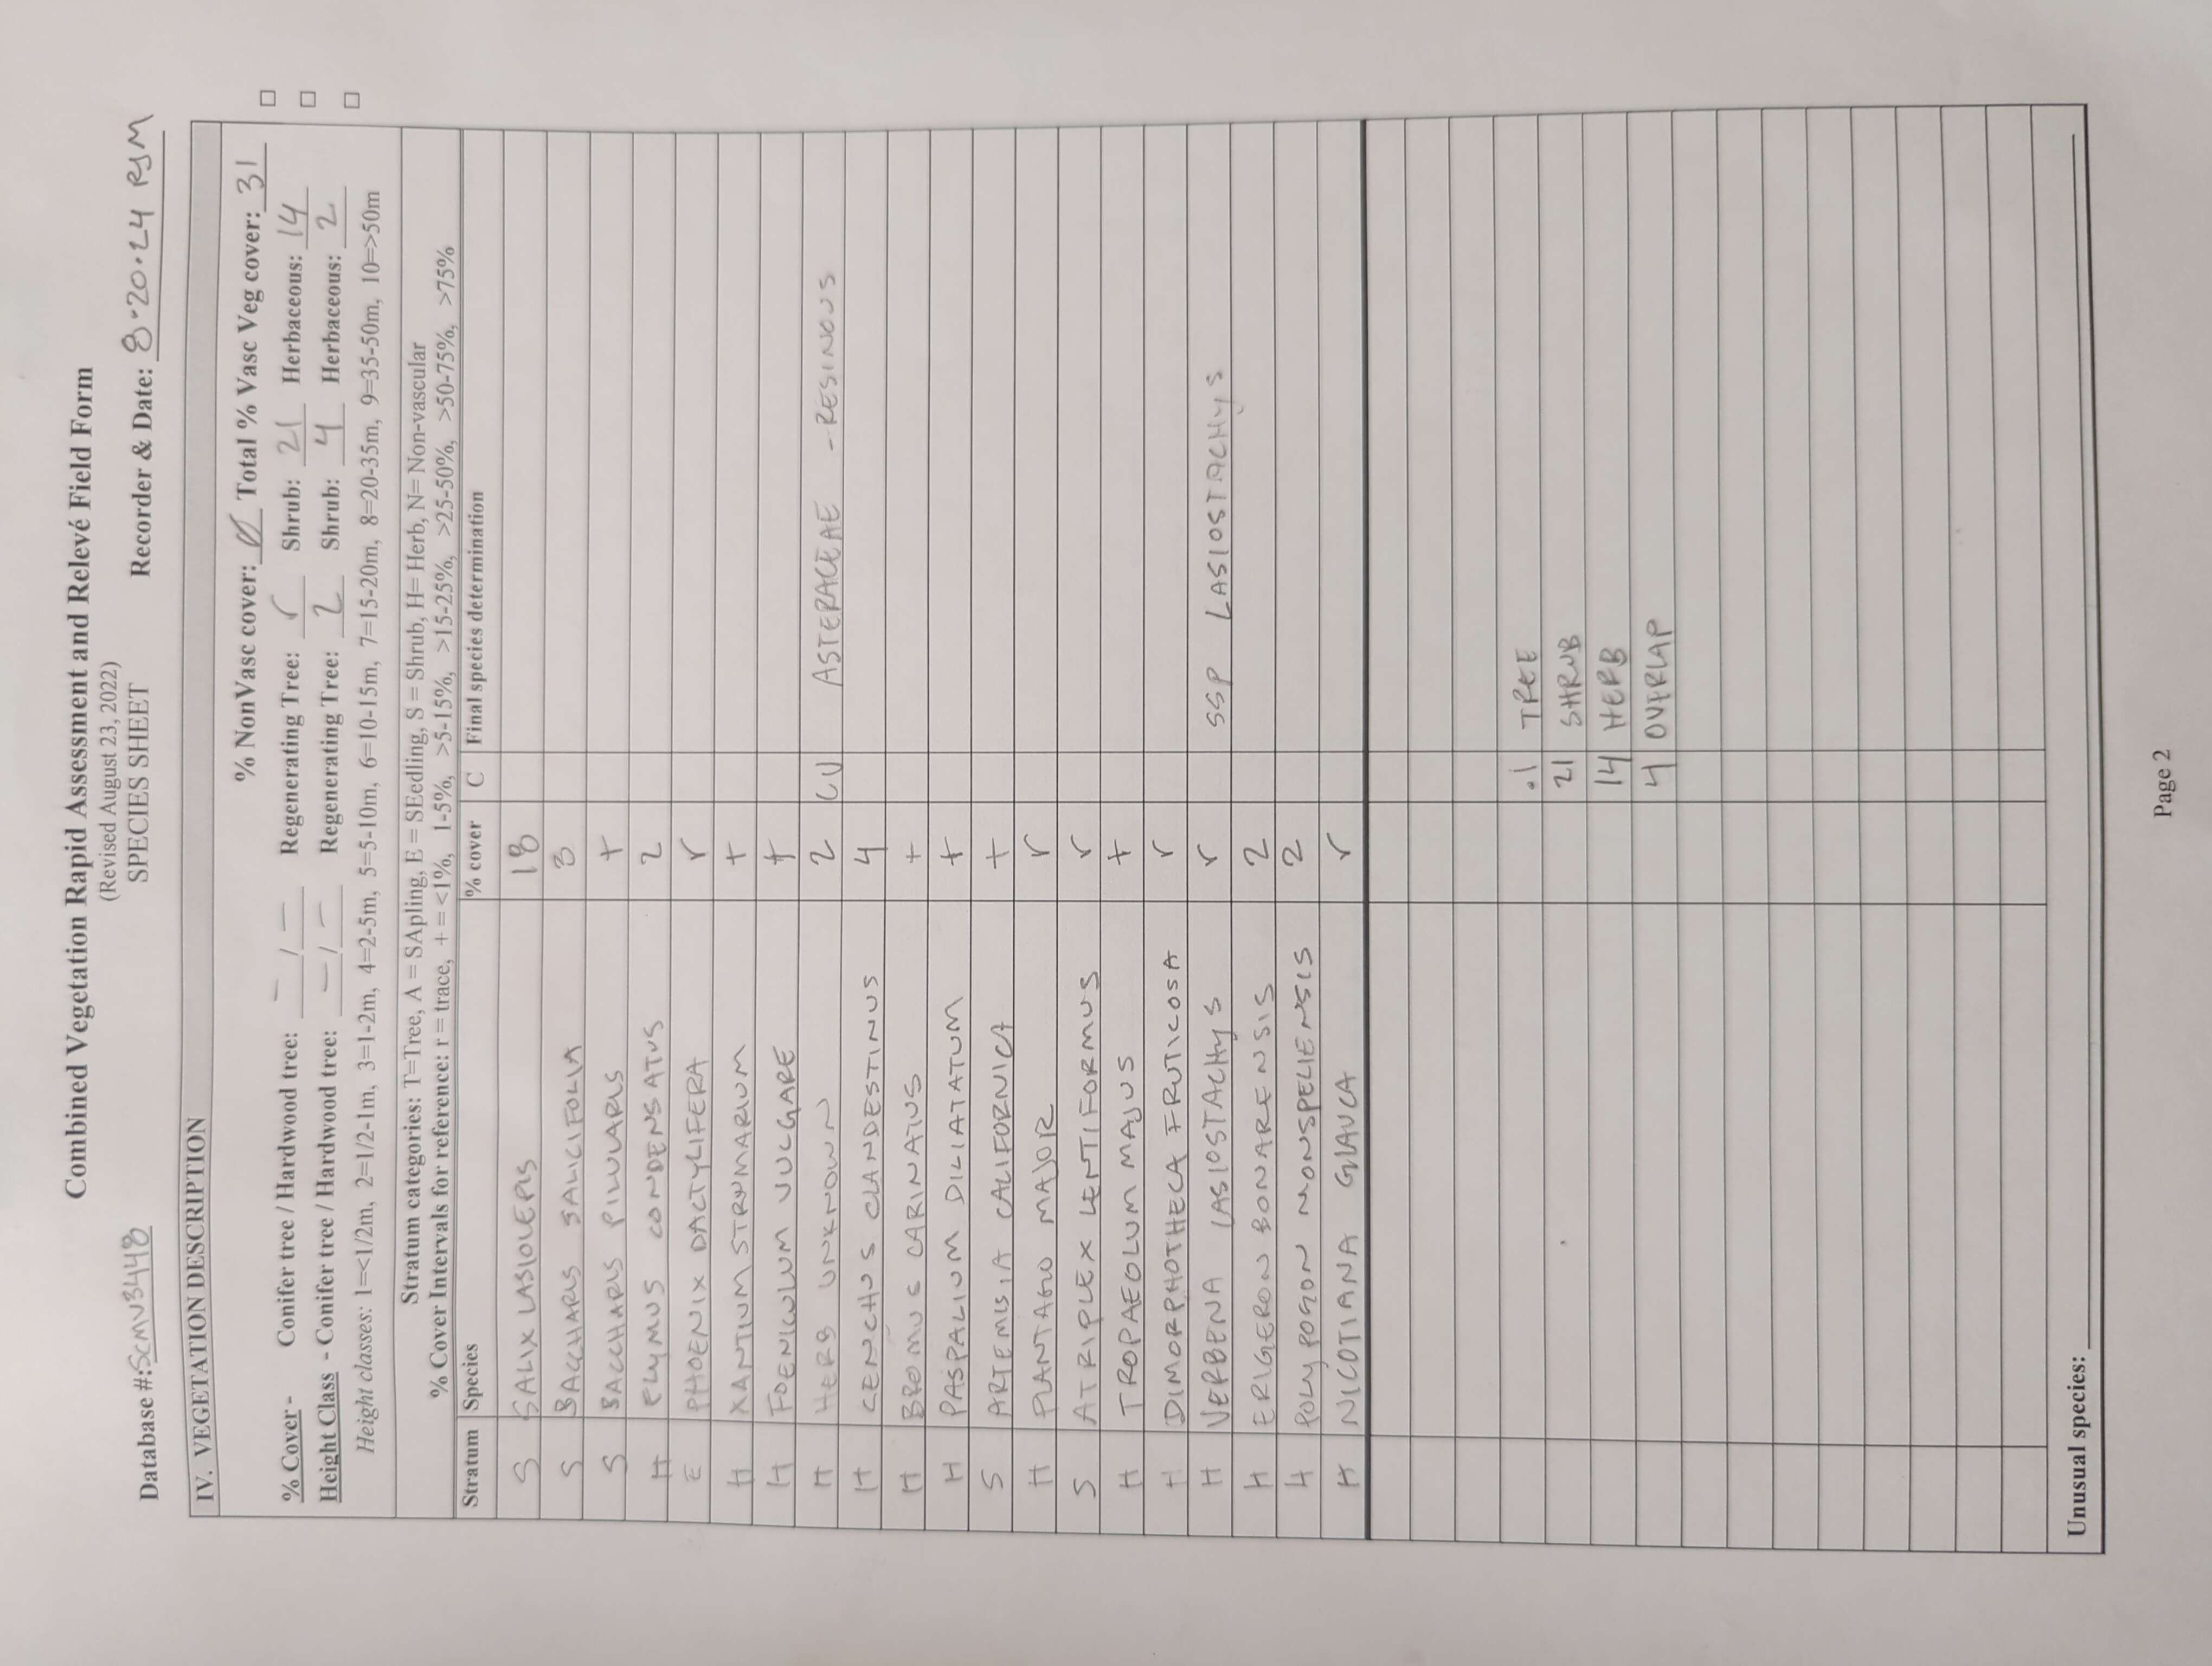 Combined Vegetation Rapid Assessment and Relevé Field Form
(Revised August 23, 2022)
SPECIES SHEET
Database #: SCMV3448 Recorder & Date: 8·20·24 RYM
IV. VEGETATION DESCRIPTION
% NonVasc cover: Ø Total % Vasc Veg cover: 31
% Cover - Conifer tree / Hardwood tree: – / – Regenerating Tree: r Shrub: 21 Herbaceous: 14
Height Class - Conifer tree / Hardwood tree: – / – Regenerating Tree: 2 Shrub: 4 Herbaceous: 2
Height classes: 1=<1/2m, 2=1/2-1m, 3=1-2m, 4=2-5m, 5=5-10m, 6=10-15m, 7=15-20m, 8=20-35m, 9=35-50m, 10=>50m
Stratum categories: T=Tree, A = SApling, E = SEedling, S = Shrub, H= Herb, N= Non-vascular
% Cover Intervals for reference: r = trace, + = <1%, 1-5%, >5-15%, >15-25%, >25-50%, >50-75%, >75%
Stratum Species % cover C Final species determination
S SALIX LASIOLEPIS 18
S BACCHARIS SALICIFOLIA 3
S BACCHARIS PILULARIS +
H ELYMUS CONDENSATUS 2
E PHOENIX DACTYLIFERA r
H XANTIUM STRUMARIUM +
H FOENICULUM VULGARE +
H HERB UNKNOWN 2 CU ASTERACEAE - RESINOUS
H CENCHUS CLANDESTINUS 4
H BROMUS CARINATUS +
H PASPALIUM DILIATATUM +
S ARTEMISIA CALIFORNICA +
H PLANTAGO MAJOR r
S ATRIPLEX LENTIFORMUS r
H TROPAEOLUM MAJUS +
H DIMORPHOTHECA FRUTICOSA r
H VERBENA LASIOSTACHYS r SSP LASIOSTACHYS
H ERIGERON BONARENSIS 2
H POLYPOGON MONSPELIENSIS 2
H NICOTIANA GLAUCA r
.1 TREE
21 SHRUB
14 HERB
4 OVERLAP
Unusual species:
Page 2